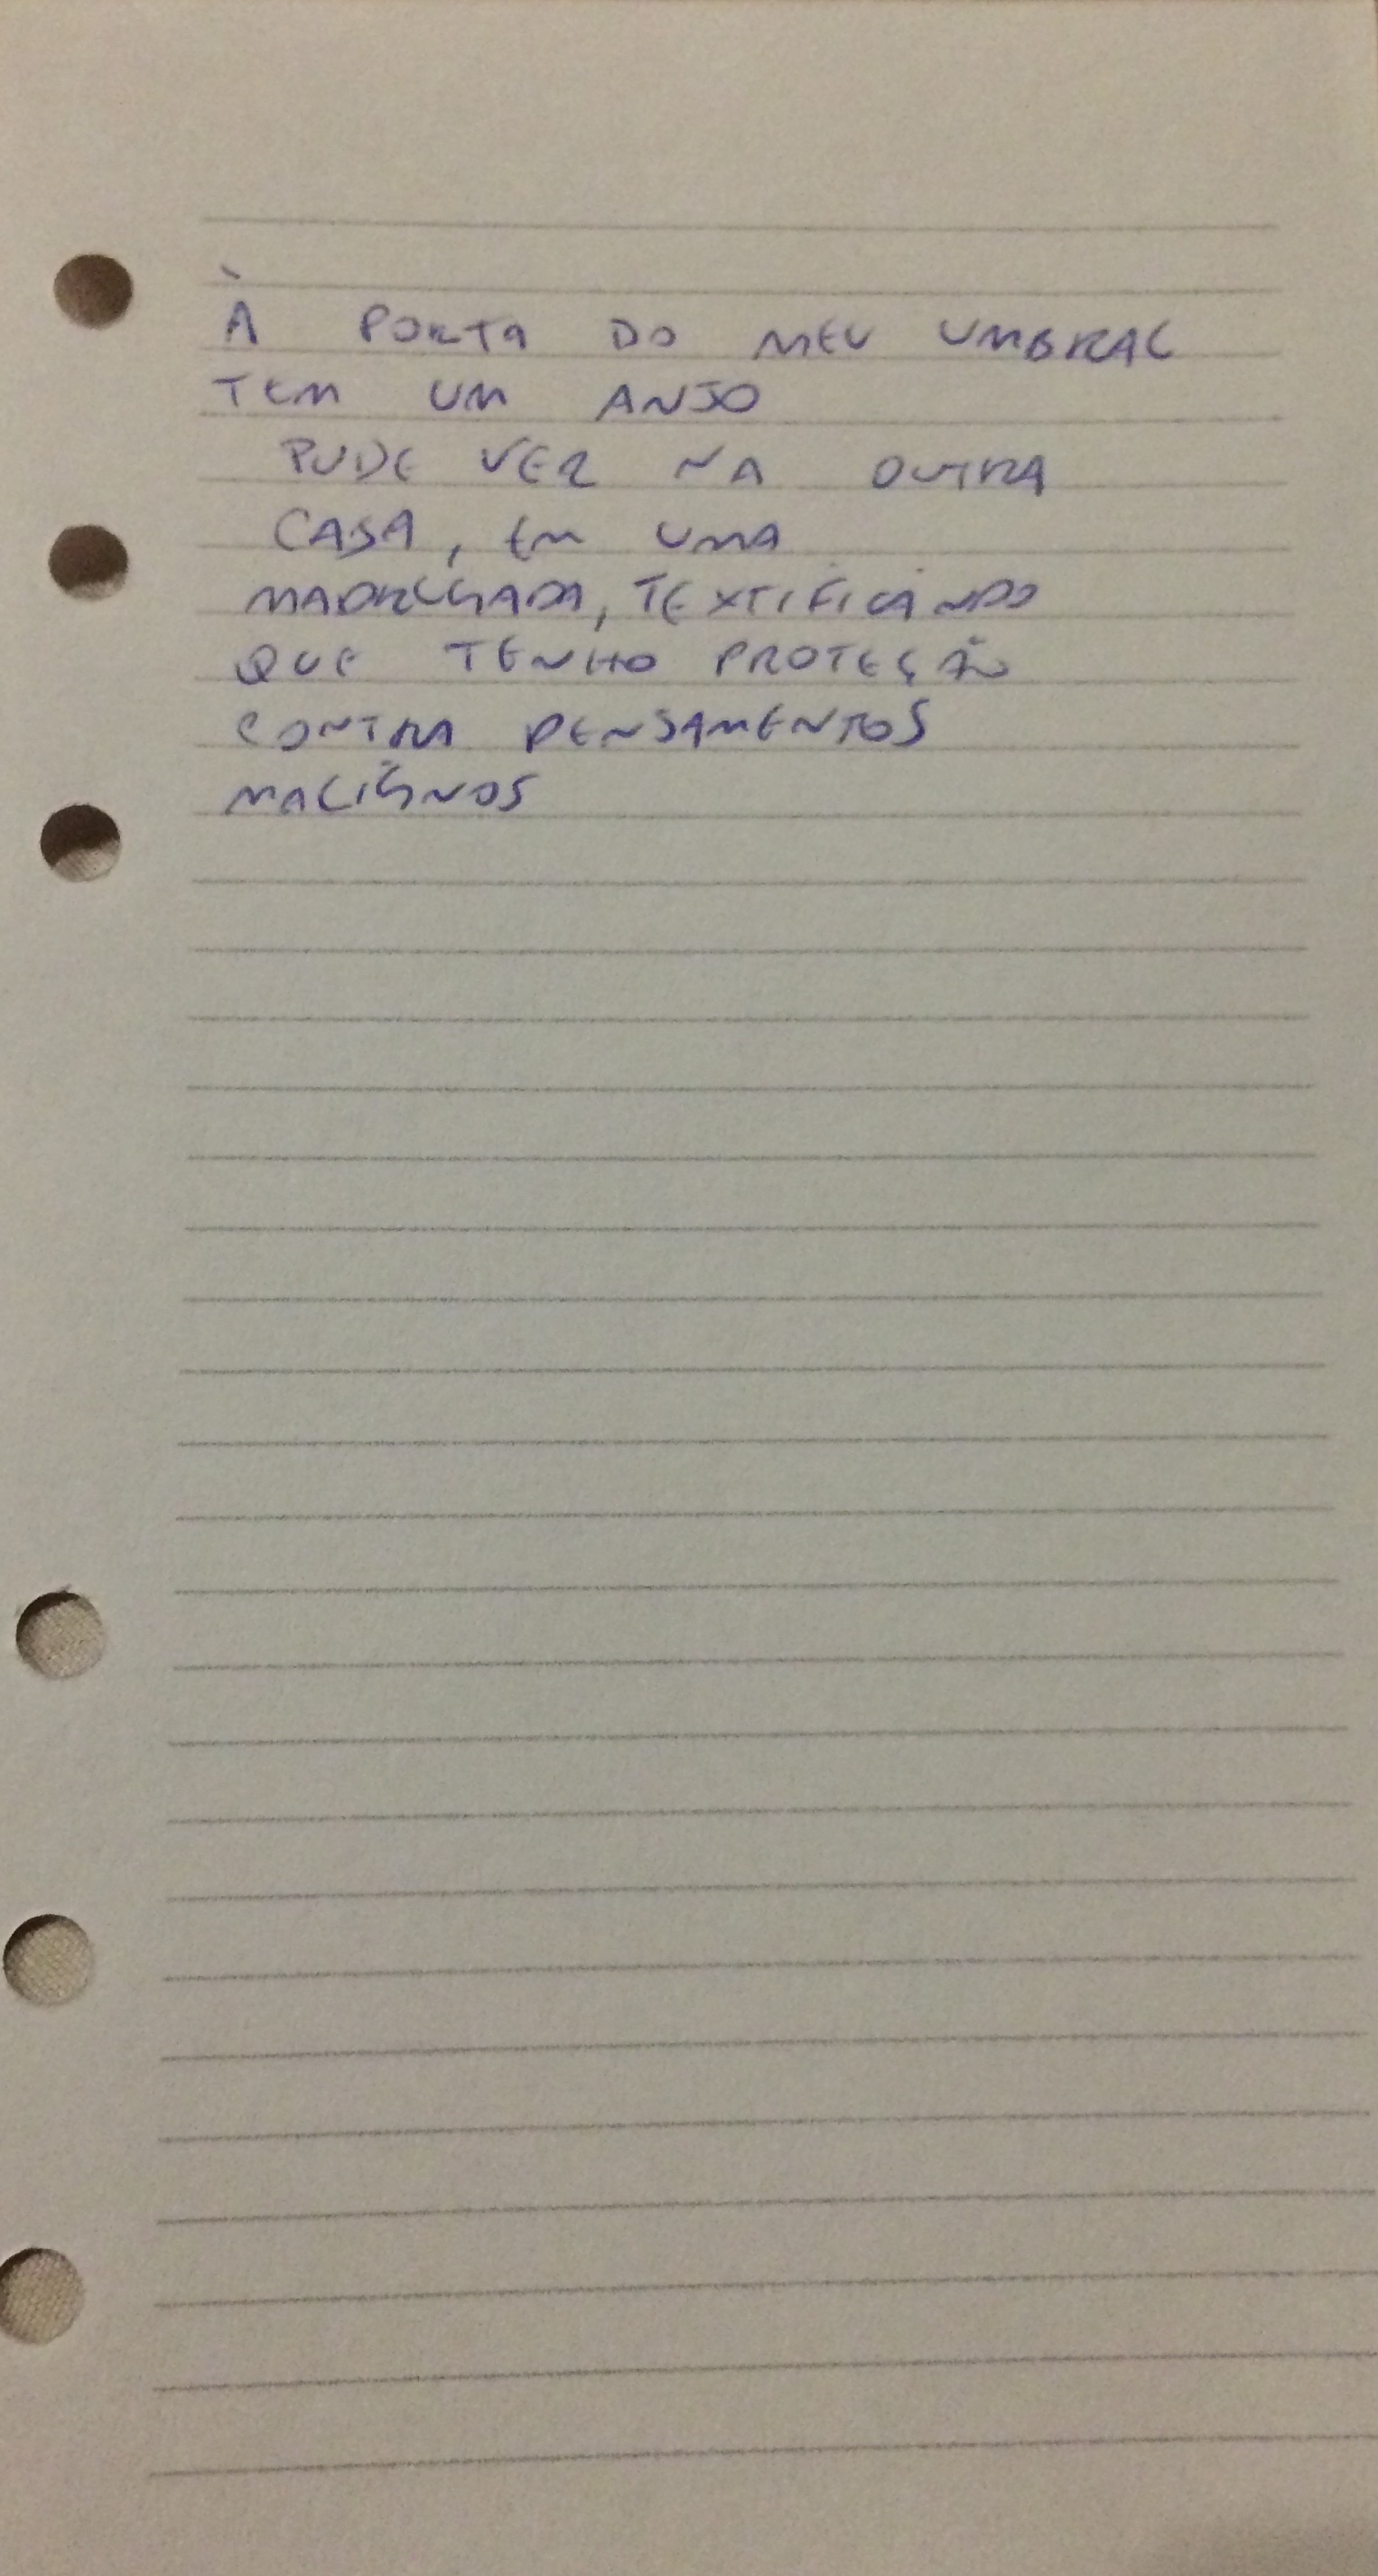 À PORTA DO MEU UMBRAL
TEM UM ANJO
PUDE VER NA OUTRA
CASA, EM UMA
MADRUGADA, TEXTIFICANDO
QUE TENHO PROTEÇÃO
CONTRA PENSAMENTOS
MALIGNOS